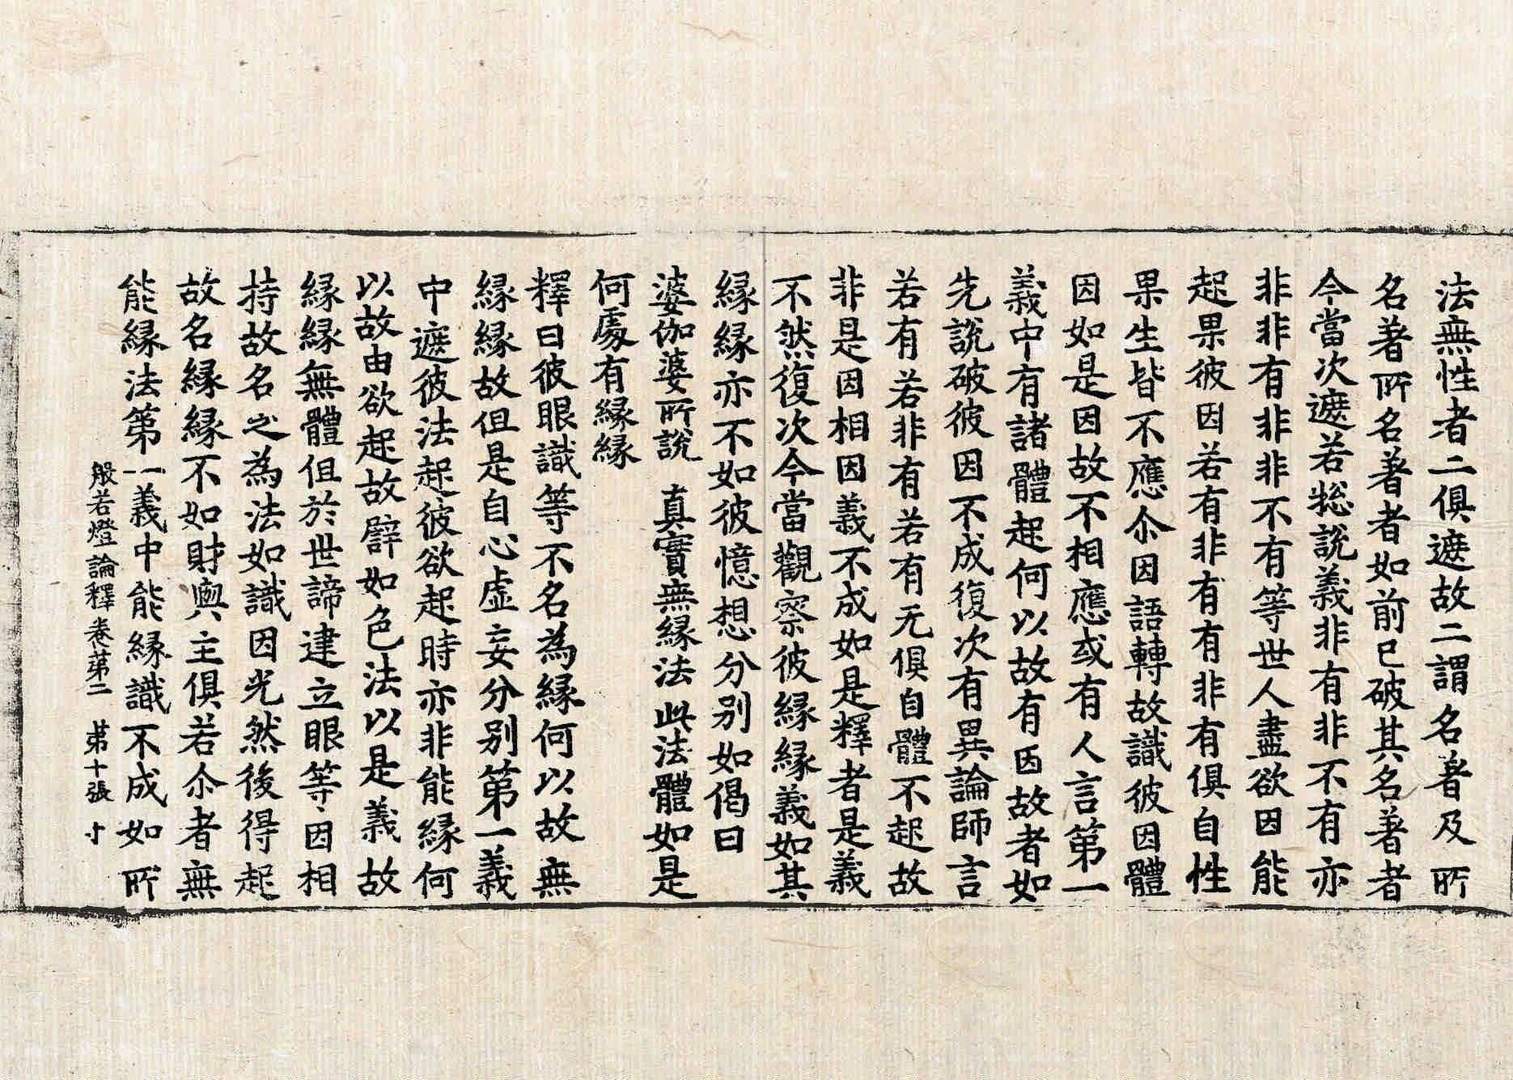 法無性者二俱遮故二謂名著及所
名著所名著者如前已破其名著者
今當次遮若揔說義非有非不有亦
非非有非非不有等世人盡欲因能
起果彼因若有非有有非有俱自性
果生皆不應尒因語轉故識彼因體
因如是因故不相應或有人言第一
義中有諸體起何以故有因故者如
先說破彼因不成復次有異論師言
若有若非有若有无俱自體不起故
非是因相因義不成如是釋者是義
不然復次今當觀察彼緣緣義如其
緣緣亦不如彼憶想分別如偈曰
婆伽婆所說　真實無緣法　此法體如是
何處有緣緣
釋曰彼眼識等不名為緣何以故無
緣緣故但是自心虛妄分別第一義
中遮彼法起彼欲起時亦非能緣何
以故由欲起故譬如色法以是義故
緣緣無體但於世諦建立眼等因相
持故名之為法如識因光然後得起
故名緣緣不如財與主俱若尒者無
能緣法第一義中能緣識不成如所
般若燈論釋卷第二　第十張　寸